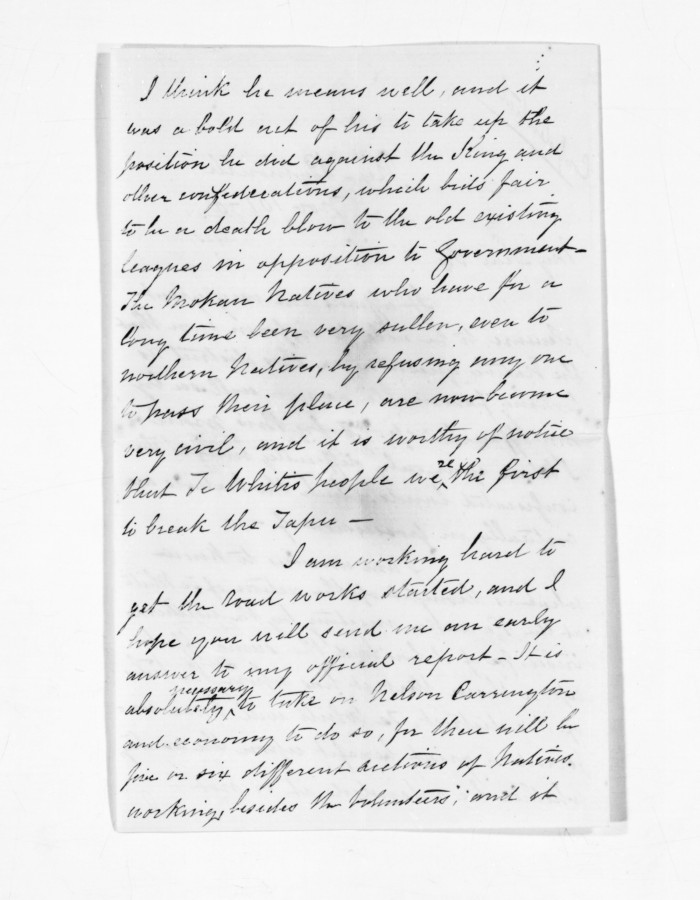 I think he means well, and it
was a bold act of his to take up the
position he did against the King and
other confederations, which bids fair
to be a death blow to the old existing
leagues in opposition to Government—
The Mokau Natives who have for a
long time been very sullen, even to
northern Natives, by refusing any one
to pass their place, are now become
very civil, and it is worthy of notice
that Te Whitis people were the first
to break the Tapu —
I am working hard to
get the road works started, and I
hope you will send me an early
answer to my official report — It is
absolutely necessary to take on Nelson Carrington
and economy to do so, for there will be
five or six different sections of Natives
working, besides the Volunteers; and it